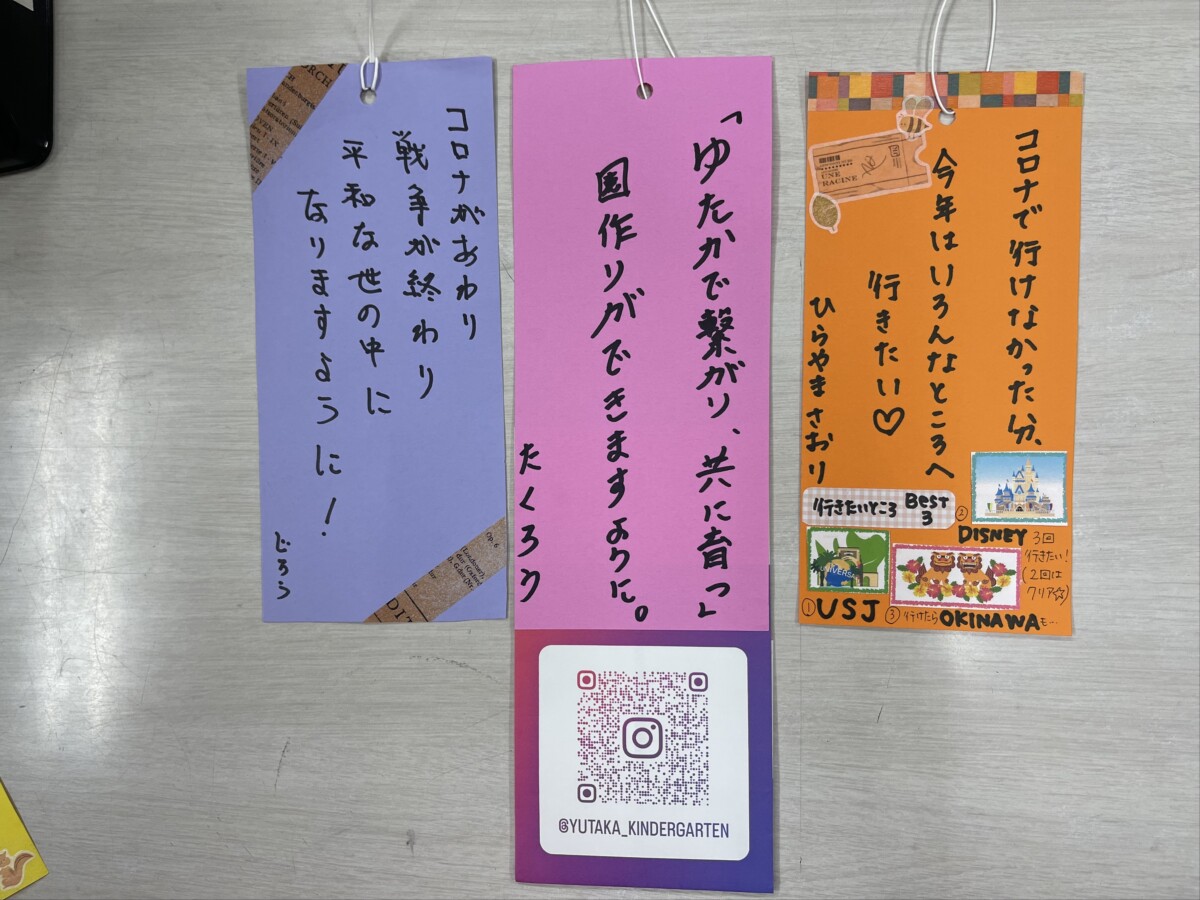 コロナがおわり
戦争が終わり
平和な世の中に
なりますように!
じろう
「ゆたかで繋がり、共に育つ」
園作りができますように。
たくろう
@YUTAKA_KINDERGARTEN
コロナで行けなかった分、
今年はいろんなところへ
行きたい♡
ひらやまさおり
UNE
RACINE
行きたいところ BEST
3
②
DISNEY 3回
行きたい!
(2回は
クリア☆)
UNIVERSA
① USJ
③ 行けたら OKINAWAも…